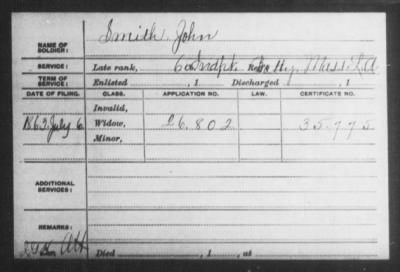 NAME OF SOLDIER: Smith, John
SERVICE: Late rank, Co Indpt. Bty. Miss. L.A.
TERM OF SERVICE: Enlisted , 1 Discharged , 1
DATE OF FILING. CLASS. APPLICATION NO. LAW. CERTIFICATE NO.
Invalid,
1863 July 6 Widow, 26.802 35.775
Minor,
ADDITIONAL SERVICES:
REMARKS:
Died , 1 , at